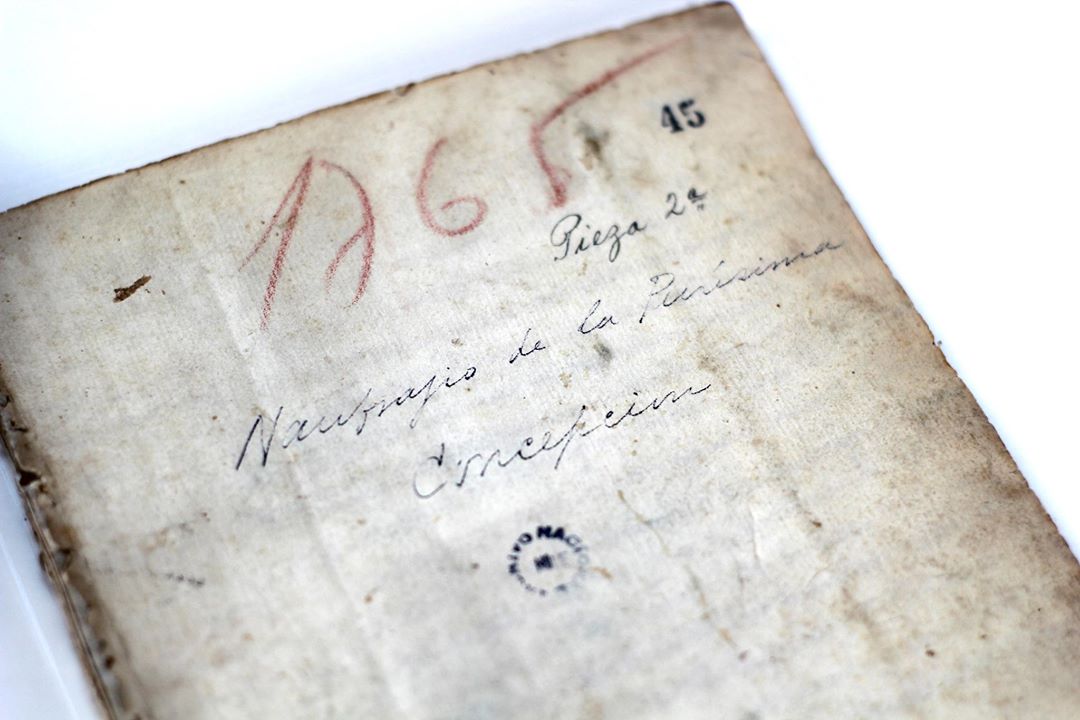 1765
45
Pieza 2ª
Naufragio de la Purísima
Concepcion
NACI